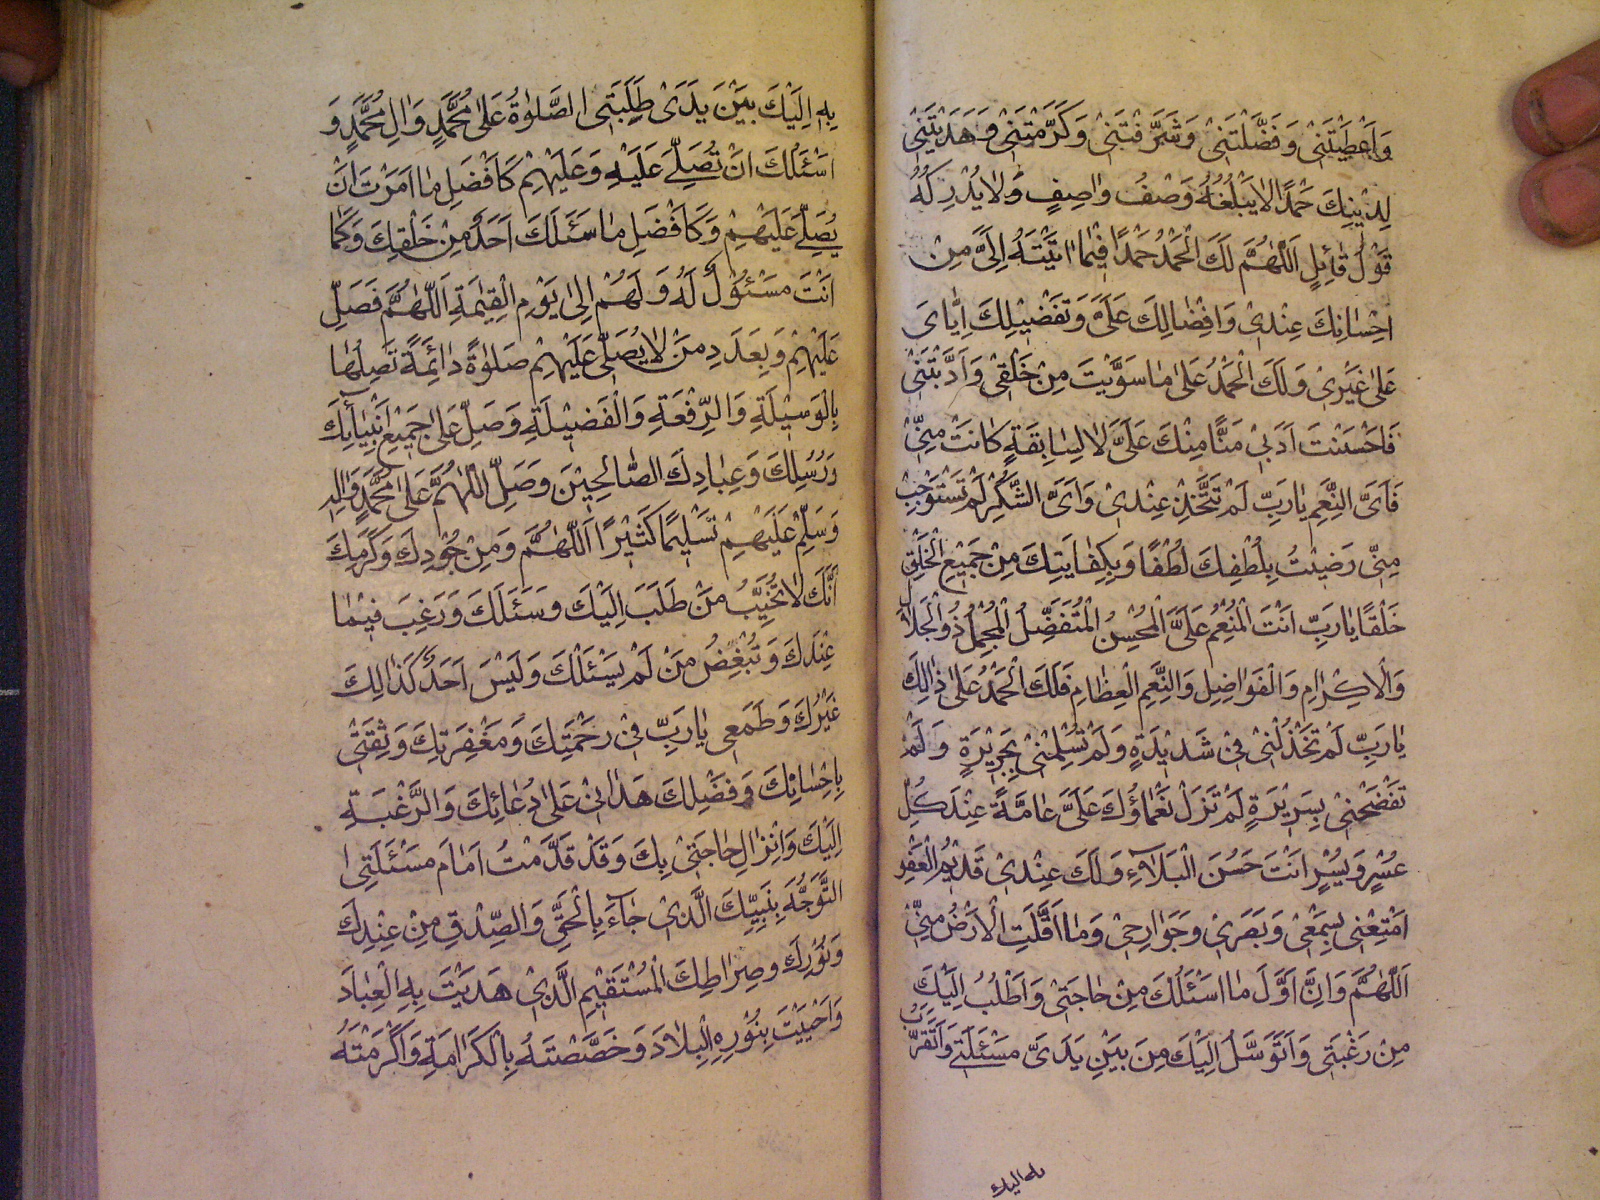 وَاَعْطَيْتَنِيْ وَفَضَّلْتَنِيْ وَشَرَّفْتَنِيْ وَكَرَّمْتَنِيْ وَهَدَيْتَنِيْ
لِدِيْنِكَ حَمْدًا لَا يَبْلُغُهُ وَصْفُ وَاصِفٍ وَلَا يُدْرِكُهُ
قَوْلُ قَائِلٍ اَللّٰهُمَّ لَكَ الْحَمْدُ حَمْدًا فِيْمَا اٰتَيْتَهُ اِلَيَّ مِنْ
اِحْسَانِكَ عِنْدِيْ وَاِفْضَالِكَ عَلَيَّ وَتَفْضِيْلِكَ اِيَّايَ
عَلٰى غَيْرِيْ وَلَكَ الْحَمْدُ عَلٰى مَا سَوَّيْتَ مِنْ خَلْقِيْ وَاَدَّبْتَنِيْ
فَاَحْسَنْتَ اَدَبِيْ مَنًّا مِنْكَ عَلَيَّ لَا لِسَابِقَةٍ كَانَتْ مِنِّيْ
فَاَيَّ النِّعَمِ يَا رَبِّ لَمْ تَتَّخِذْ عِنْدِيْ وَاَيَّ الشُّكْرِ لَمْ تَسْتَوْجِبْ
مِنِّيْ رَضِيْتُ بِلُطْفِكَ لُطْفًا وَبِكِفَايَتِكَ مِنْ جَمِيْعِ الْخَلْقِ
خَلْقًا يَا رَبِّ اَنْتَ الْمُنْعِمُ عَلَيَّ الْمُحْسِنُ الْمُتَفَضِّلُ الْمُجْمِلُ ذُو الْجَلَالِ
وَالْاِكْرَامِ وَالْفَوَاضِلِ وَالنِّعَمِ الْعِظَامِ فَلَكَ الْحَمْدُ عَلٰى ذٰلِكَ
يَا رَبِّ لَمْ تَخْذُلْنِيْ فِيْ شَدِيْدَةٍ وَلَمْ تُسْلِمْنِيْ بِجَرِيْرَةٍ وَلَمْ
تَفْضَحْنِيْ بِسَرِيْرَةٍ لَمْ تَزَلْ نَعْمَاؤُكَ عَلَيَّ عَامَّةً عِنْدَ كُلِّ
عُسْرٍ وَيُسْرٍ اَنْتَ حَسَنُ الْبَلَاءِ وَلَكَ عِنْدِيْ قَدِيْمُ الْعَفْوِ
اَمْتِعْنِيْ بِسَمْعِيْ وَبَصَرِيْ وَجَوَارِحِيْ وَمَا اَقَلَّتِ الْاَرْضُ مِنِّيْ
اَللّٰهُمَّ وَاِنَّ اَوَّلَ مَا اَسْئَلُكَ مِنْ حَاجَتِيْ وَاَطْلُبُ اِلَيْكَ
مِنْ رَغْبَتِيْ وَاَتَوَسَّلُ اِلَيْكَ مِنَ بَيْنِ يَدَيَّ مَسْئَلَتِيْ وَاَتَقَرَّبُ
به اليك
بِهِ اِلَيْكَ بَيْنَ يَدَيْ طَلِبَتِي الصَّلٰوةُ عَلٰى مُحَمَّدٍ وَاٰلِ مُحَمَّدٍ وَ
اَسْئَلُكَ اَنْ تُصَلِّيَ عَلَيْهِ وَعَلَيْهِمْ كَاَفْضَلِ مَا اَمَرْتَ اَنْ
يُصَلّٰى عَلَيْهِمْ وَكَاَفْضَلِ مَا سَئَلَكَ اَحَدٌ مِنْ خَلْقِكَ وَكَمَا
اَنْتَ مَسْئُوْلٌ لَهُ وَلَهُمْ اِلٰى يَوْمِ الْقِيٰمَةِ اَللّٰهُمَّ فَصَلِّ
عَلَيْهِمْ وَبِعَدَدِ مَنْ لَا يُصَلِّيْ عَلَيْهِمْ صَلٰوةً دَائِمَةً تَصِلُهَا
بِالْوَسِيْلَةِ وَالرِّفْعَةِ وَالْفَضِيْلَةِ وَصَلِّ عَلٰى جَمِيْعِ اَنْبِيَائِكَ
وَرُسُلِكَ وَعِبَادِكَ الصَّالِحِيْنَ وَصَلِّ اللّٰهُمَّ عَلٰى مُحَمَّدٍ وَاٰلِهِ
وَسَلِّمْ عَلَيْهِمْ تَسْلِيْمًا كَثِيْرًا اَللّٰهُمَّ وَمِنْ جُوْدِكَ وَكَرَمِكَ
اَنَّكَ لَا تُخَيِّبُ مَنْ طَلَبَ اِلَيْكَ وَسَئَلَكَ وَرَغِبَ فِيْمَا
عِنْدَكَ وَتُبْغِضُ مَنْ لَمْ يَسْئَلْكَ وَلَيْسَ اَحَدٌ كَذٰلِكَ
غَيْرُكَ وَطَمَعِيْ يَا رَبِّ فِيْ رَحْمَتِكَ وَمَغْفِرَتِكَ وَثِقَتِيْ
بِاِحْسَانِكَ وَفَضْلِكَ هَدَانِيْ عَلٰى دُعَائِكَ وَالرَّغْبَةِ
اِلَيْكَ وَاِنْزَالِ حَاجَتِيْ بِكَ وَقَدْ قَدَّمْتُ اَمَامَ مَسْئَلَتِيْ
التَّوَجُّهَ بِنَبِيِّكَ الَّذِيْ جَآءَ بِالْحَقِّ وَالصِّدْقِ مِنْ عِنْدِكَ
وَنُوْرِكَ وَصِرَاطِكَ الْمُسْتَقِيْمِ الَّذِيْ هَدَيْتَ بِهِ الْعِبَادَ
وَاَحْيَيْتَ بِنُوْرِهِ الْبِلَادَ وَخَصَّصْتَهُ بِالْكَرَامَةِ وَاَكْرَمْتَهُ